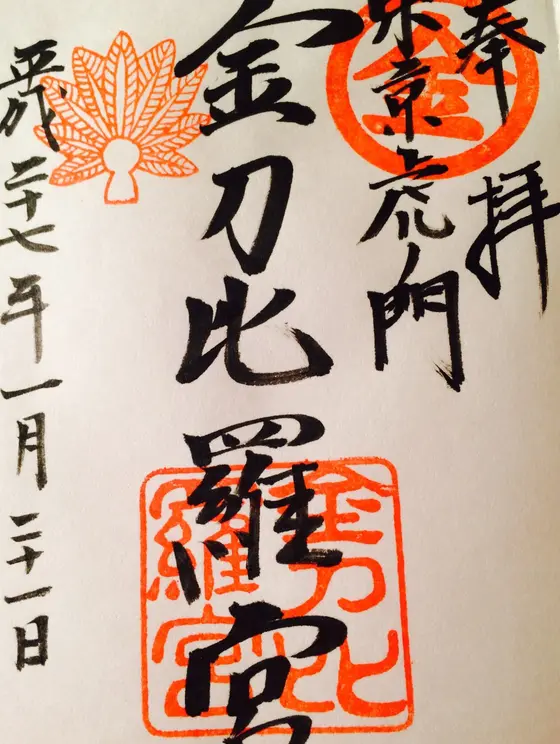 奉拝
東京虎門
金
金刀比羅宮
金刀比羅宮
平成二十七年一月二十一日